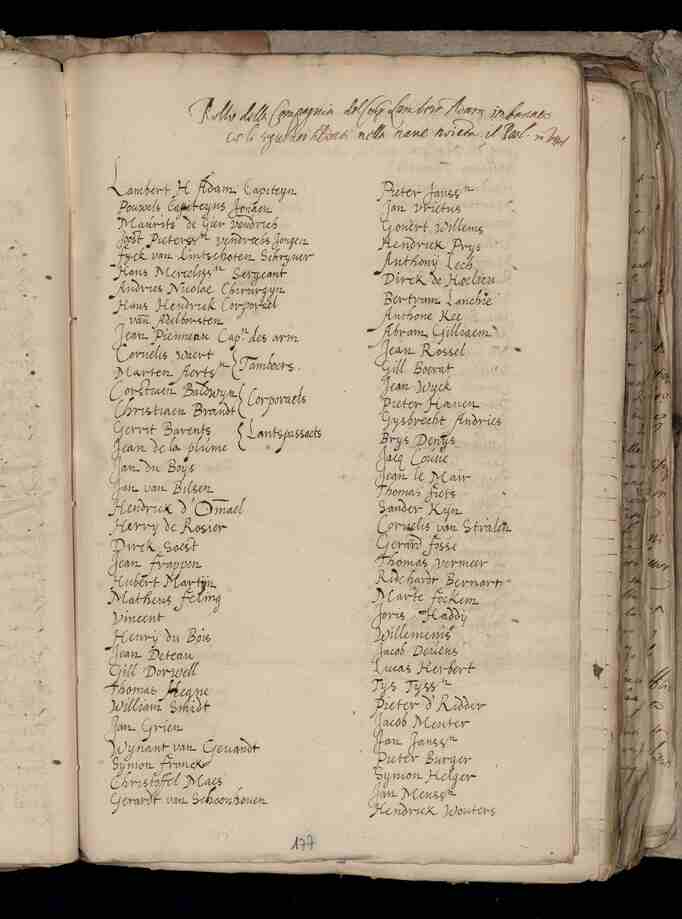 Rollo della Compagnia del Cap. Lambert Adam imbarcato
nella nave
Lambert H Adam Capiteyn
Pouwels Capiteyns Jongen
Maurits de Gier vendrich
Joost Pieterssn vendrichs Jongen
Fyck van Lintschoten Schryver
Hans Mercelissn Sergeant
Andries Nicolae Chirurgyn
Hans Hendrick Corporael
van Adelborsten
Jean Pienneau Capn des arm
Cornelis Wiert
Marten Aertssn Tamboers.
Corstiaen Baldwyn
Christiaen Brandt Corporaels
Gerrit Barents
Jean de la plume Lantspassaets
Jan du Boys
Jan van Bilsen
Hendrick d' Ommael
Harry de Rosier
Dirck Soest
Jean frappon
Hubert Martyn
Matheus feling
Vincent
Henry du Bois
Jean Deteau
Gill Dorwell
Thomas Hegne
William Smidt
Jan Grien
Wynant van Gevandt
Symon franck
Christoffel Maes
Gerardt van Schoonhoven
Pieter Janssn
Jan Vrietus
Govert Willems
Hendrick Prys
Anthony Lech
Dirck de Haelen
Bertram Lanchie
Anthone Kee
Abram Gilliaem
Jean Rossel
Gill Boerat
Jean Wyck
Pieter Haeven
Gysbrecht Andries
Brys Denys
Jacq
Jean le Mair
Thomas fiers
Sander Kijn
Cornelis van Stralen
Gerard fosse
Thomas Vermeer
Ridchardt Bernart
Marte fockem
Joris Haddy
Willemems
Jacob Deviens
Lucas Herbert
Tys Tyssn
Pieter d' Ridder
Jacob Meuter
Jan Janssn
Pieter Burger
Symon Helger
Jan Menssn
Hendrick Wouters
177